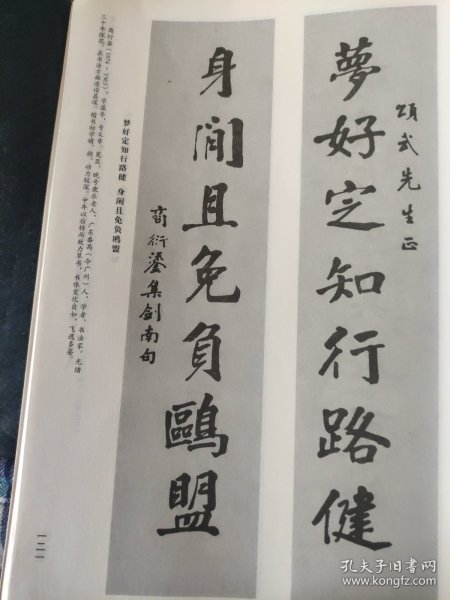 頌武先生正
夢好定知行路健
身閒且免負鷗盟
商衍鎏集劍南句
梦好定知行路健 身闲且免负鸥盟
商衍鎏（1875－1963），字藻亭，号又章、冕臣，晚号康乐老人，广东番禺（今广州）人，学者、书法家。光绪
三十年探花，在书法方面造诣甚深。楷书初学褚、颜，功力极深，中年以后转而致力草书，书体变化自如，飞逸多姿。
一二一
孔夫子旧书网
www.kongfz.com